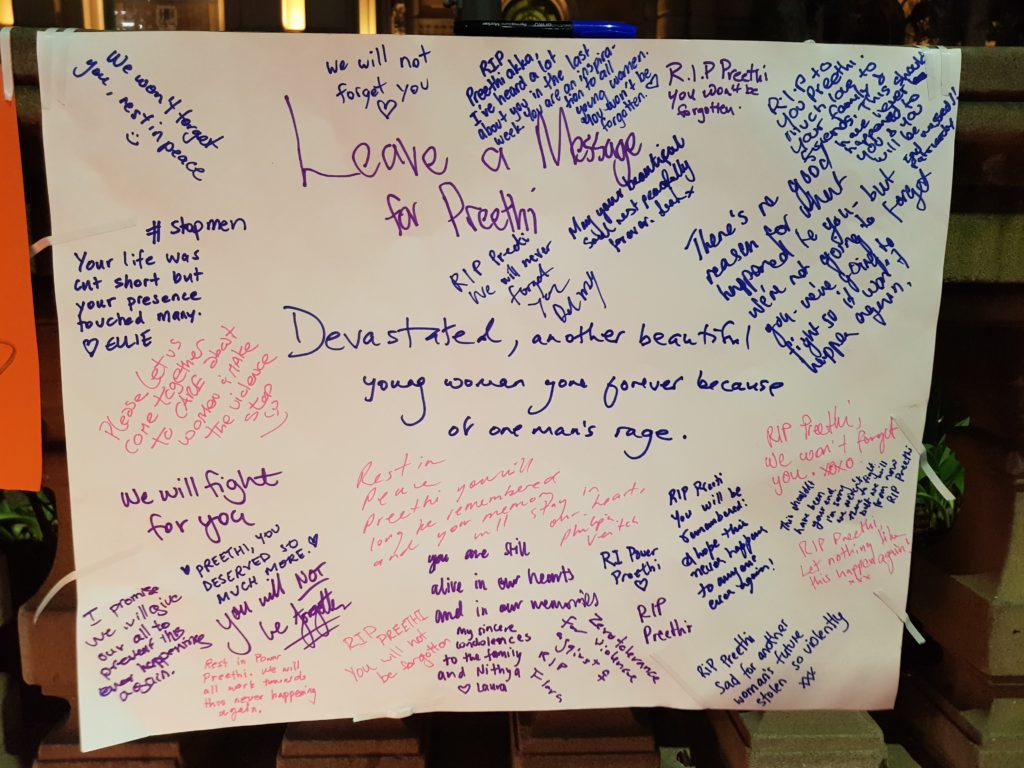 Leave a Message
for Preethi
We won't forget
you, rest in peace
we will not
forget you
RIP
Preethi akka,
I've heard a lot
about you in the last
week. You are an inspira-
tion to all
young women.
You won't be
forgotten.
R.I.P Preethi
You won't be
forgotten.
R.I.P to
you Preethi.
much love to
your family
friends. This should
have never
happened to
you
will be
#stopmen
Your life was
cut short but
your presence
touched many.
♡ ELLIE
RIP Preethi
We will never
forget
You
May your beautiful
soul rest peacefully
There's no good
reason for what
happened to you - but
we're not going to forget
you - we're going to
fight so it won't
happen again.
Devastated, another beautiful
young woman gone forever because
of one man's rage.
Please let us
come together
to CARE about
women & MAKE
the violence
stop
We will fight
for you
♥ PREETHI, YOU
DESERVED SO
MUCH MORE. ♥
you will NOT
be forgotten
Rest in
Peace
Preethi you will
long be remembered
and your memory
will stay in
our heart.
RIP Preethi
You will be
remembered!
I hope this
never happens
to anyone
ever again!
RIP Preethi,
we won't forget
you. xoxo
This shouldn't
have been
RIP Preethi
RIP Preethi,
Let nothing like
this happen again!
xxx
I promise
we will give
our all to
prevent this
ever happening
again.
Rest in Power
Preethi. We will
all work towards
this never happening
again.
RIP PREETHI
You will not
be forgotten
you are still
alive in our hearts
and in our memories
my sincere
condolences
to the family
and Nithya
♡ Laura
RI Power
Preethi
♡
RIP
Preethi
Zero tolerance
for violence
against
RIP
Flora
RIP Preethi
Sad for another
woman's future
stolen so violently
xxx